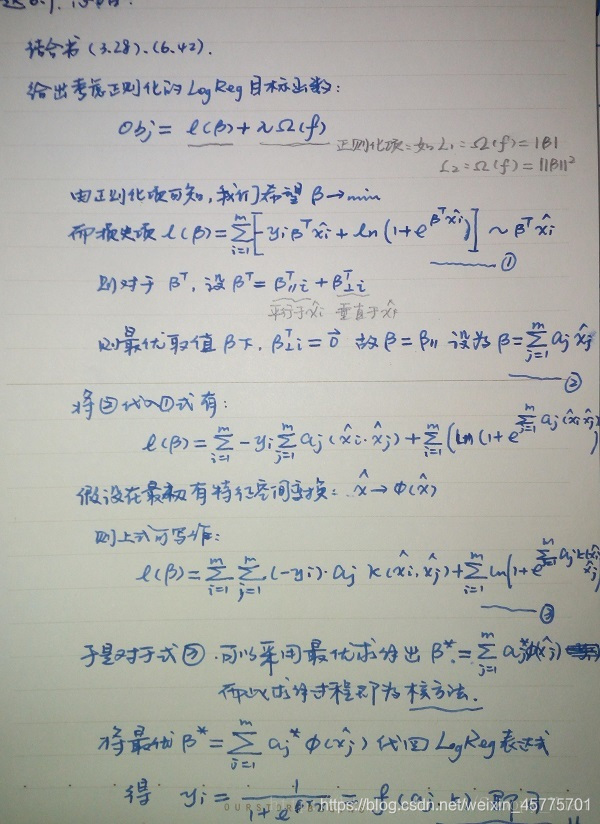 结合书 (3.28)、(6.42).
给出考虑正则化的 LogReg 目标函数:
Obj = ℓ(β) + λΩ(f)
正则化项: 如 L₁ = Ω(f) = |β|
L₂ = Ω(f) = ||β||²
由正则化项可知, 我们希望 β→min
而损失项 ℓ(β) = Σ_{i=1}^{m} [-yᵢβᵀx̂ᵢ + ln(1+e^{βᵀx̂ᵢ})] ~ βᵀx̂ᵢ
①
则对于 βᵀ, 设 βᵀ = βᵀ_{∥i} + βᵀ_{⊥i}
平行于x̂ᵢ 垂直于x̂ᵢ
则最优取值 β下, βᵀ_{⊥i} = 0⃗ 故 β = β_{∥} 设为 β = Σ_{j=1}^{m} aⱼ x̂ⱼ
②
将②代入①式有:
ℓ(β) = Σ_{i=1}^{m} -yᵢ Σ_{j=1}^{m} aⱼ (x̂ᵢ·x̂ⱼ) + Σ_{i=1}^{m} (ln(1+e^{Σ_{j=1}^{m} aⱼ(x̂ᵢ x̂ⱼ)})
假设在最初有特征空间变换: x̂→φ(x̂)
则上式可写作:
ℓ(β) = Σ_{i=1}^{m} Σ_{j=1}^{m} (-yᵢ)·aⱼ k(x̂ᵢ, x̂ⱼ) + Σ_{i=1}^{m} ln(1+e^{Σ_{j=1}^{m} aⱼk(x̂ᵢ x̂ⱼ)})
③
于是对于式③. 可以采用最优求解出 β* = Σ_{j=1}^{m} aⱼ*φ(x̂ⱼ)
而以求解过程即为核方法.
将最优 β* = Σ_{i=1}^{m} aⱼ* φ(x̂ⱼ) 代回 LogReg 表达式
得 yᵢ = 1/(1+e
https://blog.csdn.net/weixin_45775701